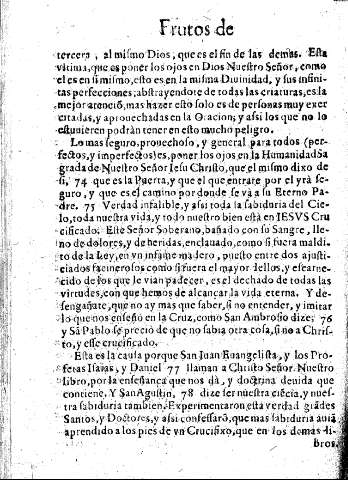 Frutos de
tercera, al mismo Dios, que es el fin de las demas. Esta
vltima, que es poner los ojos en Dios Nuestro Señor, como
el es en si mismo, esto es en la misma Divinidad, y sus infini-
tas perfecciones; abstrayendote de todas las criaturas, es la
mejor atenciõ, mas hazer esto solo es de personas muy exer
citadas, y aprovechadas en la Oracion; y assi los que no lo
estuvieren podràn tener en esto mucho peligro.
Lo mas seguro, provechoso, y general para todos (per-
fectos, y imperfectos) es, poner los ojos en la Humanidad Sa
grada de Nuestro Señor Iesu Christo, que el mismo dixo de
si, 74 que es la Puerta, y que el que entrare por el yrà se-
guro, y que es el camino por donde se và a su Eterno Pa-
dre. 75 Verdad infalible, y assi toda la sabiduria del Cie-
lo, toda nuestra vida, y todo nuestro bien està en IESVS Cru
cificado. Este Señor Soberano, bañado con su Sangre, lle-
no de dolores, y de heridas, enclauado, como si fuera maldi-
to de la Ley, en vn infame madero, puesto entre dos ajusti-
ciados facinerosos como si fuera el mayor dellos, y escarne-
cido de los que le vian padecer, es el dechado de todas las
virtudes, con que hemos de alcançar la vida eterna. Y de-
sengañate, que no ay mas que saber, si no entender, y imitar
lo que nos enseñò en la Cruz, como San Ambrosio dize, 76
y Sã Pablo se preciò de que no sabia otra cosa, si no a Chris-
to, y esse crucificado.
Esta es la causa porque San Juan Euangelista, y los Pro-
fetas Isaias, y Daniel 77 llaman a Christo Señor Nuestro
libro, por la enseñança que nos dà, y doctrina devida que
contiene. Y San Agustin, 78 dize ser nuestra ciẽcia, y nues-
tra sabiduria tambien. Experimentaron esta verdad grãdes
Santos, y Doctores, y assi confessarõ, que mas sabiduria auiã
aprendido a los pies de vn Crucifixo, que en los demàs li-
bros.